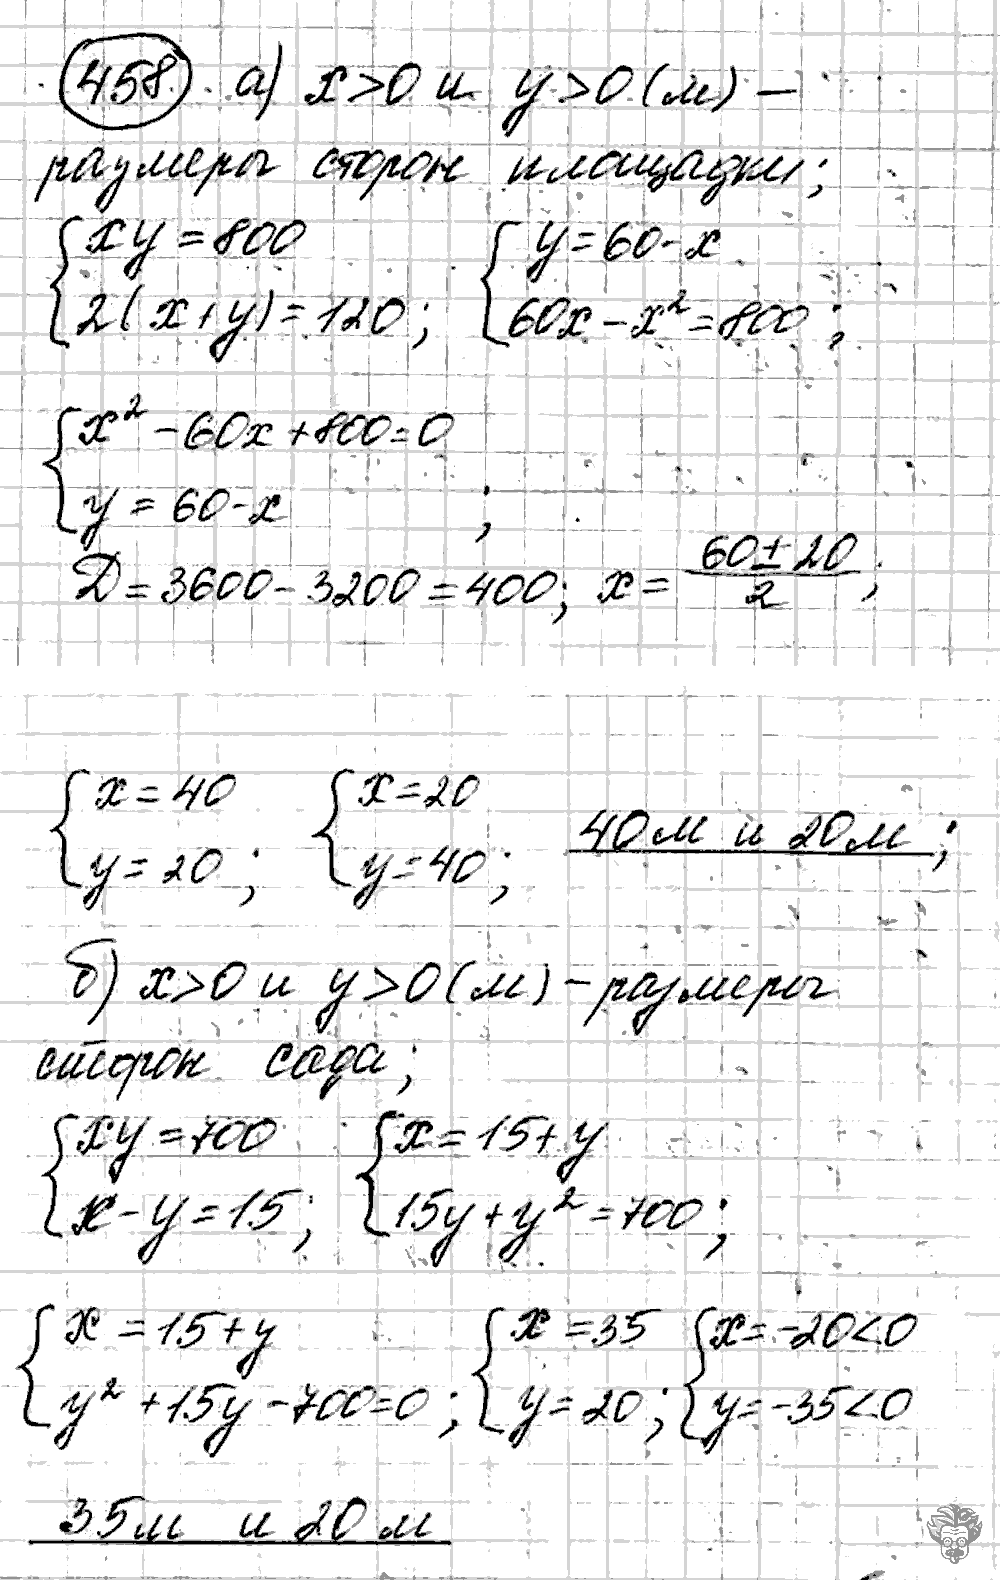 458. а) x>0 и y>0 (м) –
размеры сторон площадки;
{xy=800 {y=60-x
{2(x+y)=120; {60x-x²=800;
{x²-60x+800=0
{y=60-x ;
Д=3600-3200=400; x=(60±20)/2;
{x=40 {x=20
{y=20; {y=40; 40м и 20м;
б) x>0 и y>0 (м) – размеры
сторон сада;
{xy=700 {x=15+y
{x-y=15; {15y+y²=700;
{x=15+y {x=35 {x=-20<0
{y²+15y-700=0; {y=20; {y=-35<0
35м и 20м